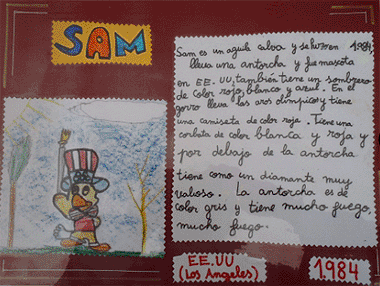 SAM
Sam es un aguila calva y se hizo en 1984,
lleva una antorcha y fue mascota
en EE.UU también tiene un sombrero
de color rojo, blanco y azul. En el
gorro lleva los aros olimpicos y tiene
una camiseta de color roja. Tiene una
corbata de color blanca y roja y
por debajo de la antorcha
tiene como un diamante muy
valioso. La antorcha es de
color gris y tiene mucho fuego,
mucho fuego.
EE.UU
(Los Angeles)
1984